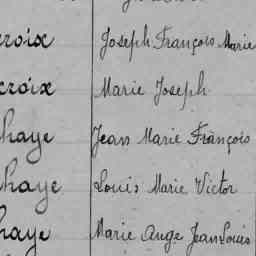 croix Joseph François Marie
croix Marie Joseph
haye Jean Marie François
haye Louis Marie Victor
haye Marie Ange Jean Louis